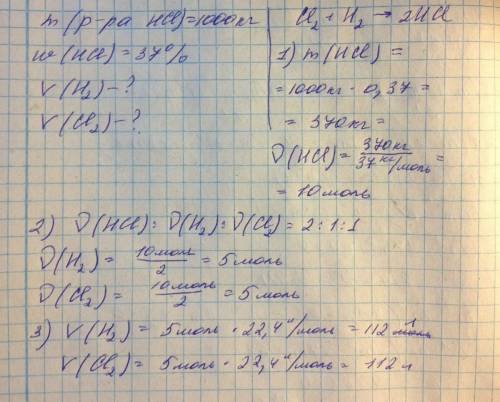 m (р-ра HCl)=1000кг
w (HCl) = 37%
V (H₂) - ?
V (Cl₂) - ?
Cl₂ + H₂ → 2HCl
1) m (HCl) =
= 1000кг · 0,37 =
= 370кг =
ν (HCl) = 370кг / 37 кг/моль =
= 10 моль
2) ν (HCl) : ν (H₂) : ν (Cl₂) = 2 : 1 : 1
ν (H₂) = 10 моль / 2 = 5 моль
ν (Cl₂) = 10 моль / 2 = 5 моль
3) V (H₂) = 5 моль · 22,4 л/моль = 112 л
V (Cl₂) = 5 моль · 22,4 л/моль = 112 л